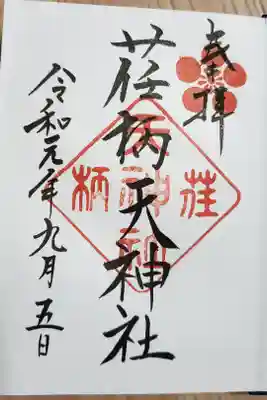 奉拝
荏柄天神社
荏柄天神社
令和元年九月五日